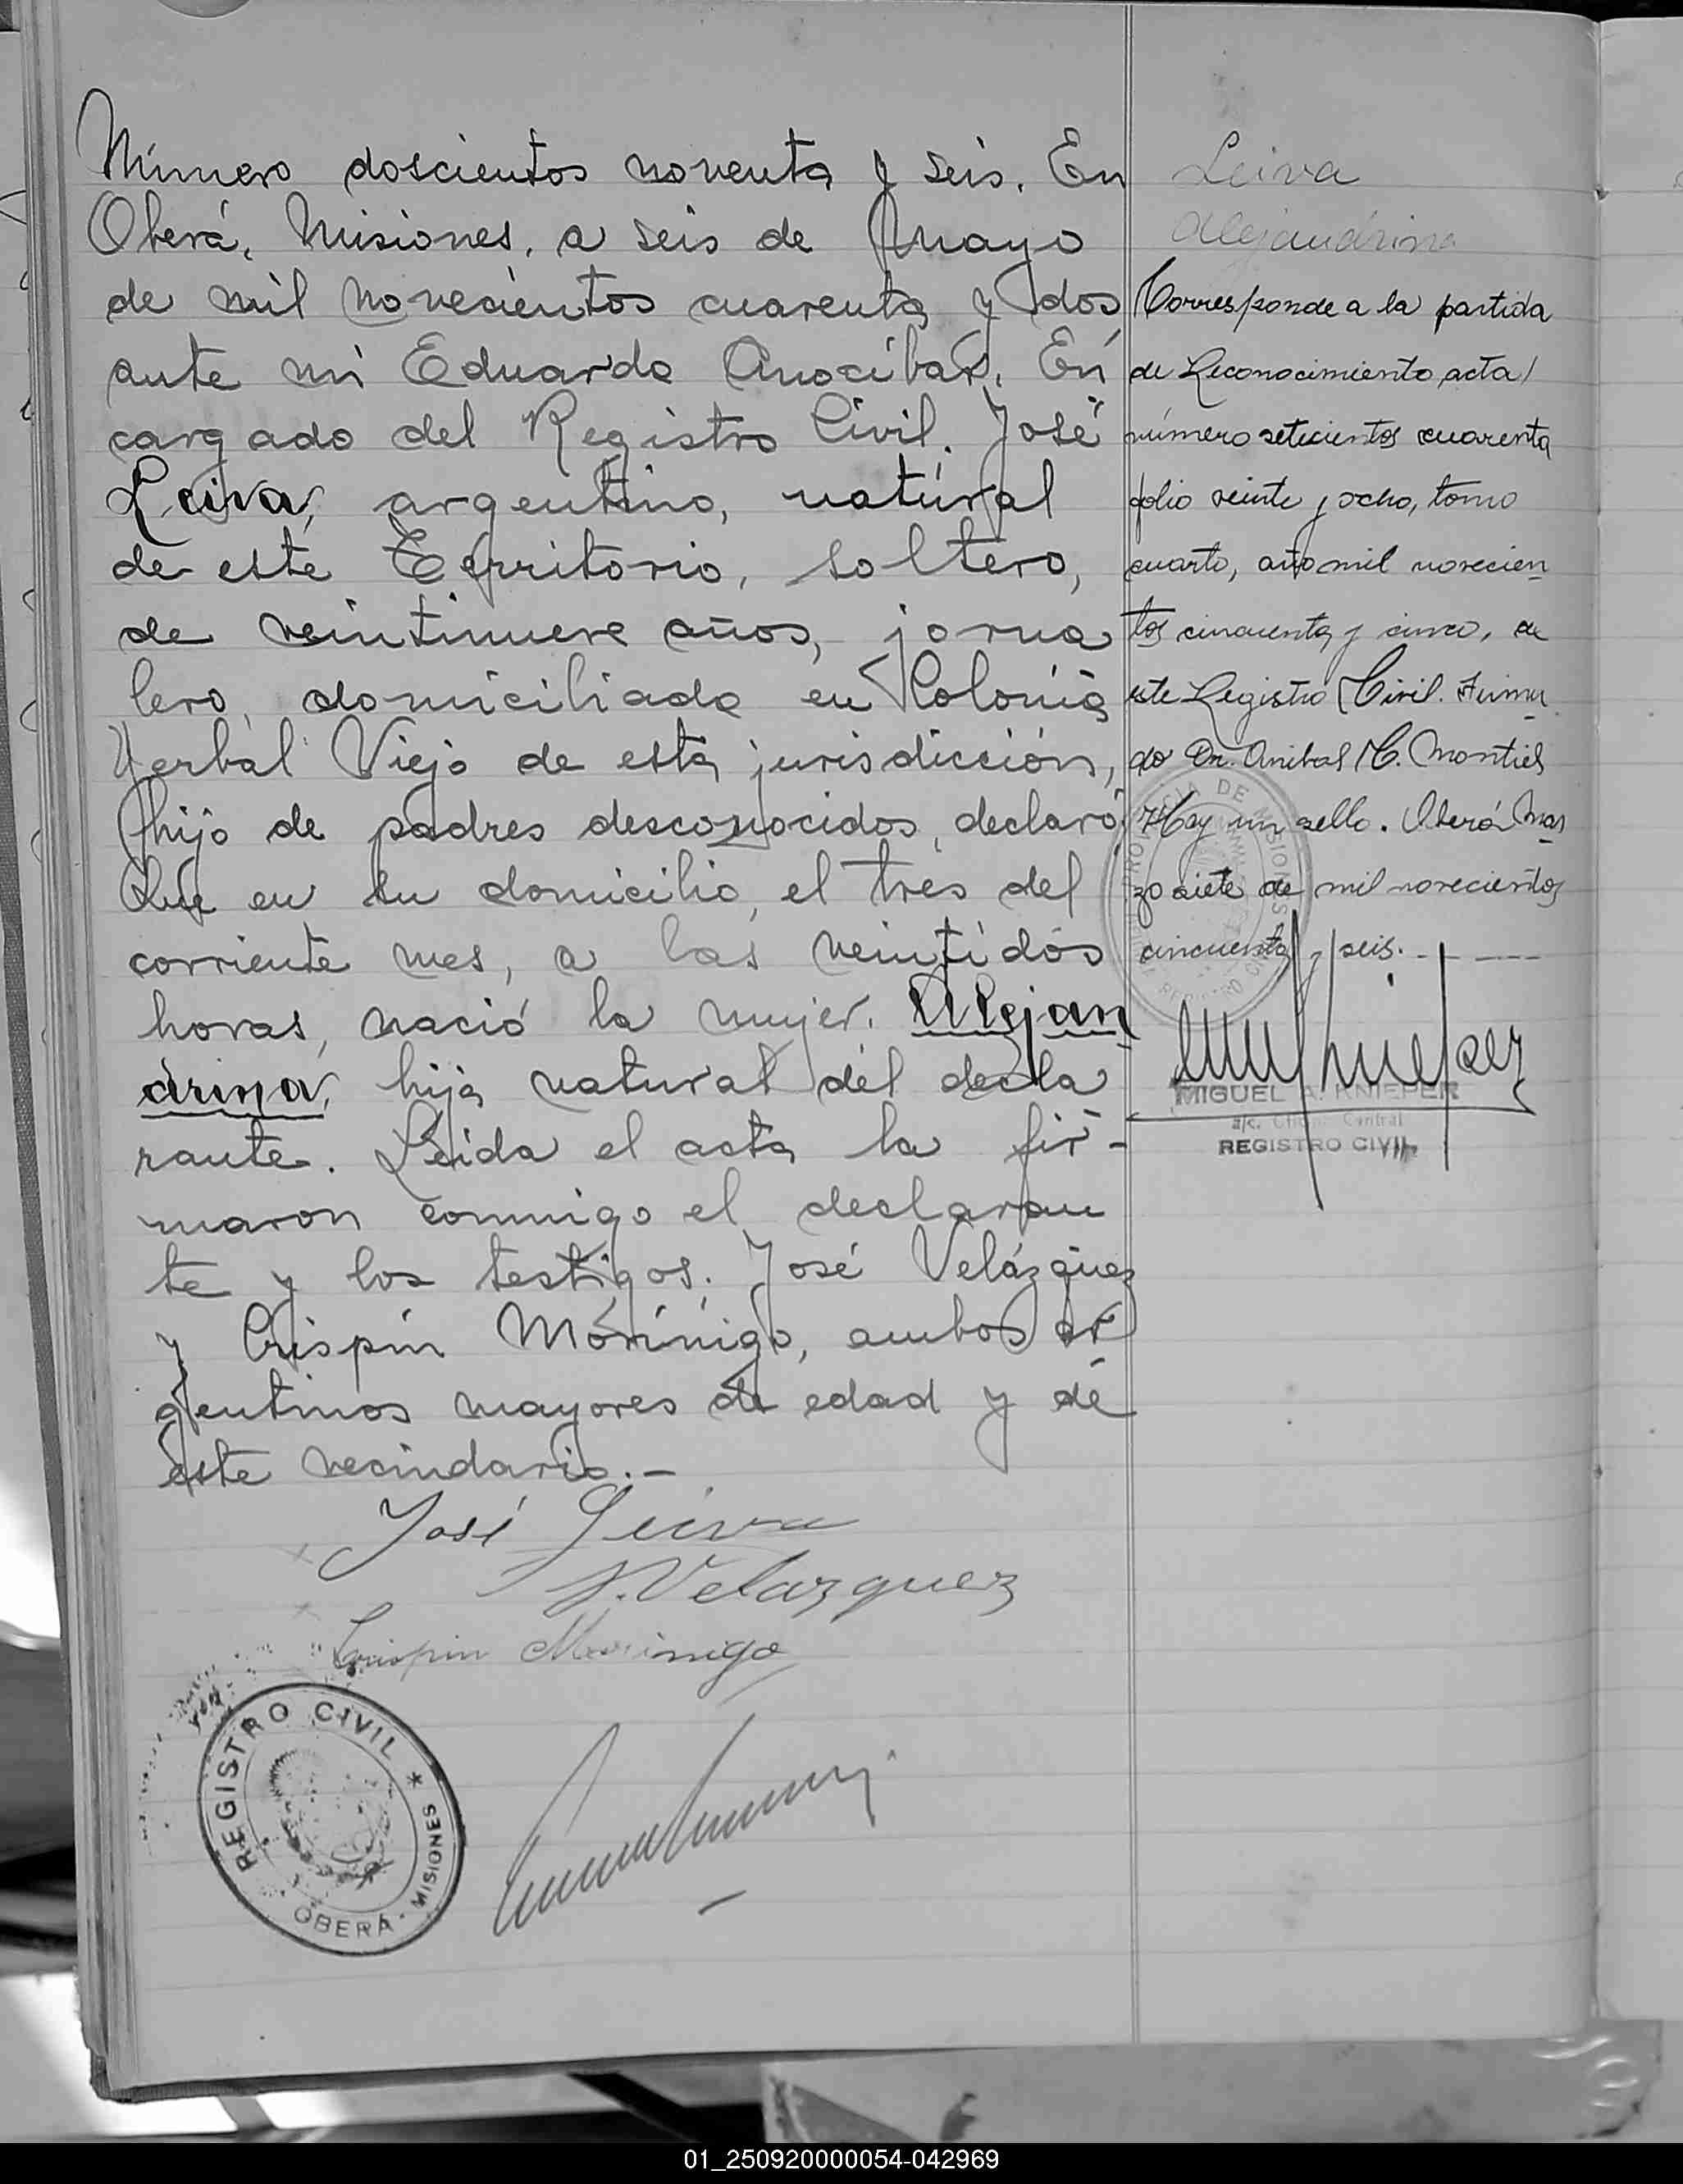 Número doscientos noventa y seis. En
Oberá, Misiones, a seis de Mayo
de mil novecientos cuarenta y dos
ante mi Eduardo Anocíbar, En
cargado del Registro Civil. José
Leiva, argentino, natural
de este Territorio, soltero,
de veintinueve años, jorna
lero, domiciliado en Colonia
Yerbal Viejo de esta jurisdicción,
hijo de padres desconocidos, declaró:
Que en su domicilio, el tres del
corriente mes, a las veintidós
horas, nació la mujer. Alejan
drina, hija natural del decla
rante. Leida el acta la fir-
maron conmigo el declaran
te y los testigos. José Velázquez
y Crispín Morínigo, ambos ar
gentinos mayores de edad y de
este vecindario.-
José Leiva
J. Velazquez
Crispin Morinigo
REGISTRO CIVIL *
OBERÁ - MISIONES
Leiva
Alejandrina
Corresponde a la partida
de Reconocimiento, acta
número setecientos cuarenta
folio veinte y ocho, tomo
cuarto, año mil novecien
tos cincuenta y cinco, de
este Registro Civil. Firma
do Dr. Anibal C. Montiel
Hay un sello. Oberá Mar
zo siete de mil novecientos
cincuenta y seis.
MIGUEL A. KNIEPER
a/c. Oficina Central
REGISTRO CIVIL
01_250920000054-042969